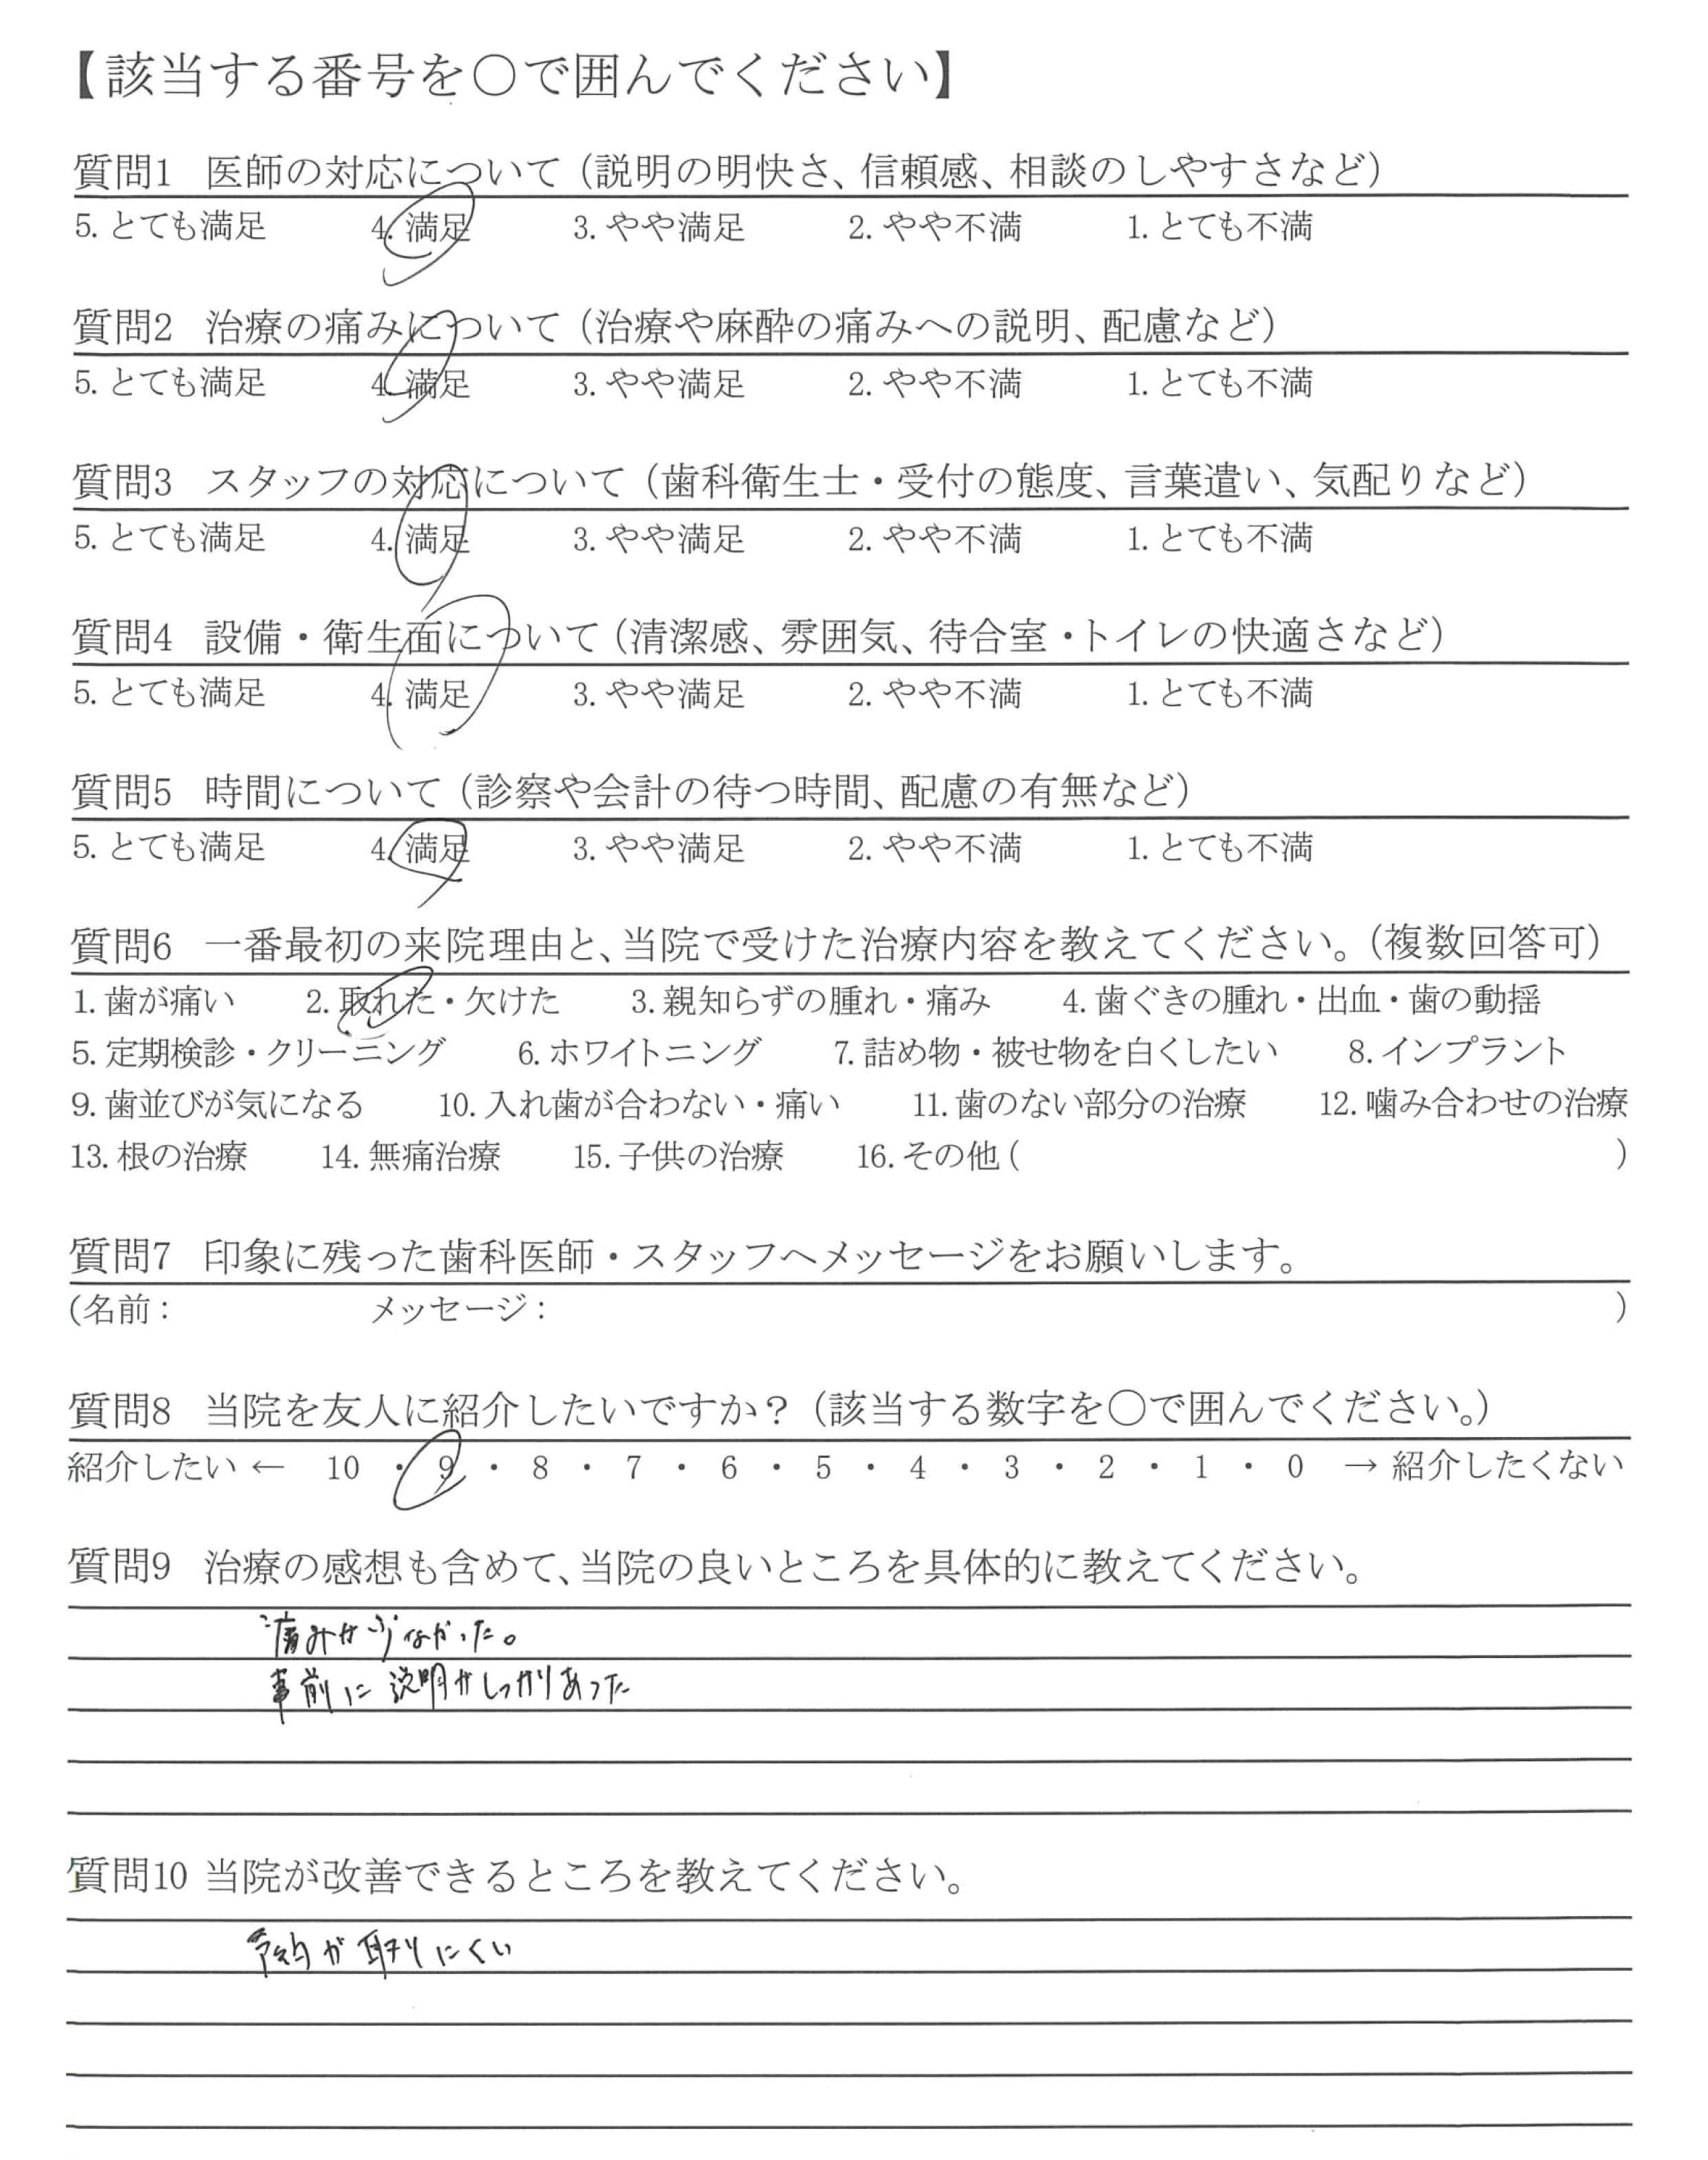 【該当する番号を○で囲んでください】
質問1 医師の対応について（説明の明快さ、信頼感、相談のしやすさなど）
5. とても満足 4. 満足 3. やや満足 2. やや不満 1. とても不満
質問2 治療の痛みについて（治療や麻酔の痛みへの説明、配慮など）
5. とても満足 4. 満足 3. やや満足 2. やや不満 1. とても不満
質問3 スタッフの対応について（歯科衛生士・受付の態度、言葉遣い、気配りなど）
5. とても満足 4. 満足 3. やや満足 2. やや不満 1. とても不満
質問4 設備・衛生面について（清潔感、雰囲気、待合室・トイレの快適さなど）
5. とても満足 4. 満足 3. やや満足 2. やや不満 1. とても不満
質問5 時間について（診察や会計の待つ時間、配慮の有無など）
5. とても満足 4. 満足 3. やや満足 2. やや不満 1. とても不満
質問6 一番最初の来院理由と、当院で受けた治療内容を教えてください。（複数回答可）
1. 歯が痛い 2. 取れた・欠けた 3. 親知らずの腫れ・痛み 4. 歯ぐきの腫れ・出血・歯の動揺
5. 定期検診・クリーニング 6. ホワイトニング 7. 詰め物・被せ物を白くしたい 8. インプラント
9. 歯並びが気になる 10. 入れ歯が合わない・痛い 11. 歯のない部分の治療 12. 噛み合わせの治療
13. 根の治療 14. 無痛治療 15. 子供の治療 16. その他 ( )
質問7 印象に残った歯科医師・スタッフへメッセージをお願いします。
(名前： メッセージ： )
質問8 当院を友人に紹介したいですか？（該当する数字を○で囲んでください。）
紹介したい ← 10 ・ 9 ・ 8 ・ 7 ・ 6 ・ 5 ・ 4 ・ 3 ・ 2 ・ 1 ・ 0 → 紹介したくない
質問9 治療の感想も含めて、当院の良いところを具体的に教えてください。
痛みは少なかった。
事前に説明がしっかりあった
質問10 当院が改善できるところを教えてください。
予約が取りにくい